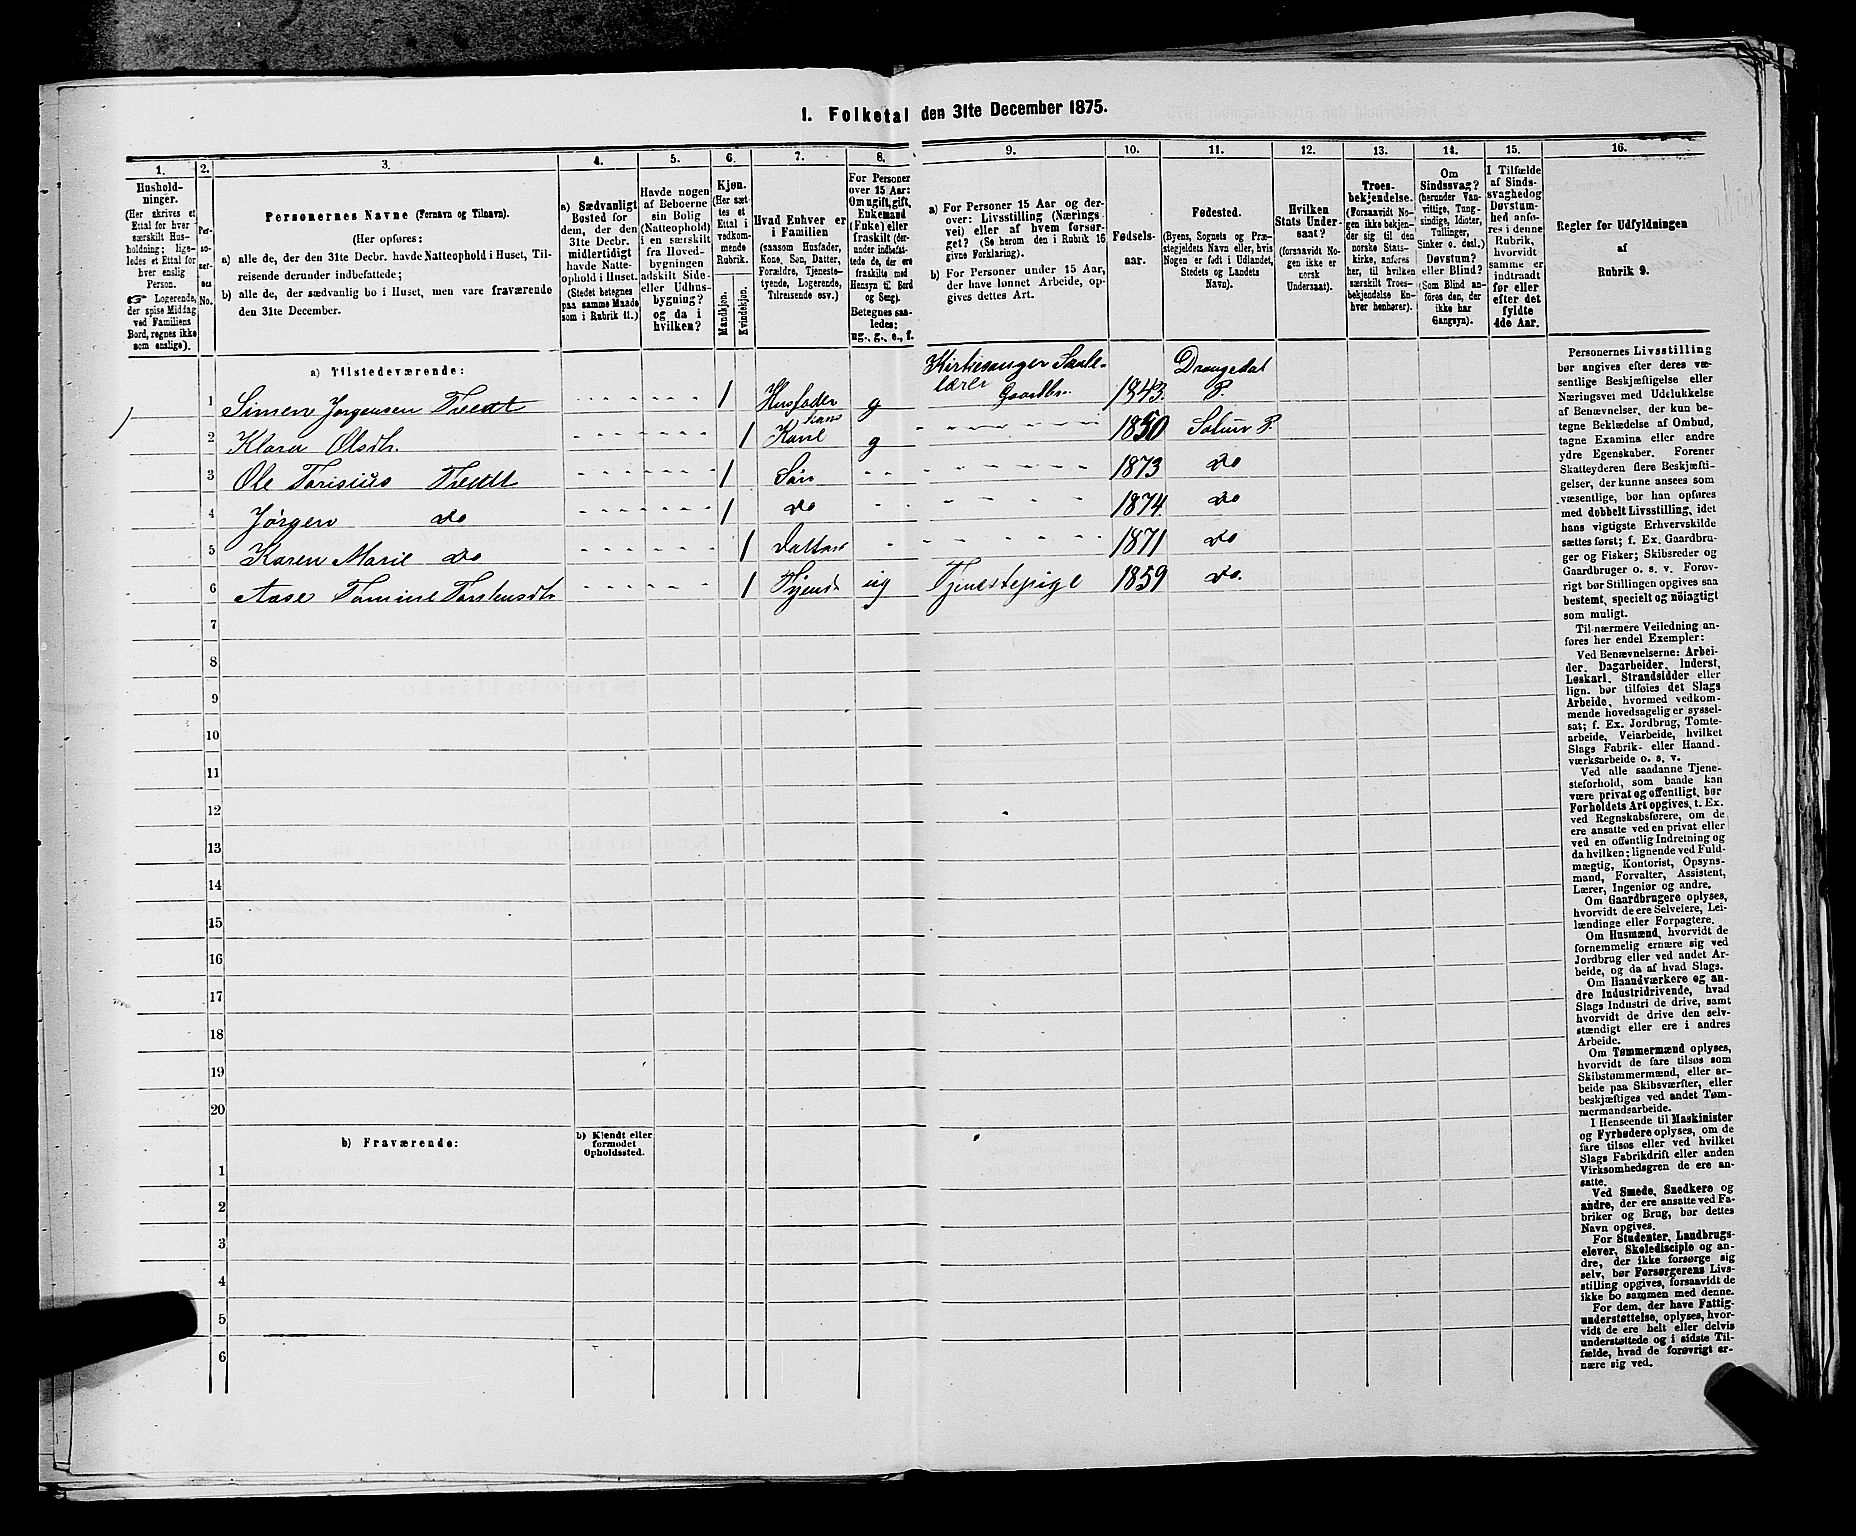 I. Folketal den 31te December 1875.
1. 2. 3. 4. 5. 6. 7. 8. 9. 10. 11. 12. 13. 14. 15. 16.
Hushold-
ninger.
(Her skrives et
Ettal for hver
særskilt Hus-
holdning; lige-
ledes et Ettal for
hver enslig
Person.
☞ Logerende,
der spise Middag
ved Familiens
Bord, regnes ikke
som enslige).
Per-
so-
ner-
nes
No.
Personernes Navne (Fornavn og Tilnavn).
(Her opføres:
a) alle de, der den 31te Decbr. havde Natteophold i Huset, Til-
reisende derunder indbefattede;
b) alle de, der sædvanlig bo i Huset, men vare fraværende
den 31te December.
a) Sædvanligt
Bosted for
dem, der den
31te Decbr.
midlertidigt
havde Natte-
ophold i Huset.
(Stedet betegnes
paa samme Maade
som i Rubrik 11.)
Havde nogen
af Beboerne
sin Bolig
(Natteophold)
i en særskilt
fra Hoved-
bygningen
adskilt Side-
eller Udhus-
bygning?
og da i
hvilken?
Kjøn.
(Her sæt-
tes et
Ettal i
vedkom-
mende
Rubrik.
Mandkjøn.
Kvindekjøn.
Hvad Enhver er
i Familien
(saasom Husfader,
Kone, Søn, Datter,
Forældre, Tjeneste-
tyende, Logerende,
Tilreisende osv.)
For Personer
over 15 Aar:
Om ugift, gift,
Enkemand
(Enke) eller
fraskilt (der-
under indbefat-
tede de, der ere
fraskilte med
Hensyn til Bord
og Seng).
Betegnes saa-
ledes:
ug., g., e., f.
a) For Personer 15 Aar og der-
over: Livsstilling (Nærings-
vei) eller af hvem forsør-
get? (Se herom den i Rubrik 16
givne Forklaring).
b) For Personer under 15 Aar,
der have lønnet Arbeide, op-
gives dettes Art.
Fødsels-
aar.
Fødested.
(Byens, Sognets og Præ-
stegjeldets Navn eller, hvis
Nogen er født i Udlandet,
Stedets og Landets
Navn).
Hvilken
Stats Under-
saat?
(forsaavidt No-
gen ikke er
norsk
Undersaat).
Troes-
bekjendelse.
(Forsaavidt No-
gen ikke bekjen-
der sig til den
norske Stats-
kirke, anføres
her, til hvilken
særskilt Troes-
bekjendelse En-
hver henhører).
Om
Sindssvag?
(herunder Van-
vittige, Tung-
sindige, Idioter,
Tullinger,
Sinker o. desl.)
Døvstum?
eller Blind?
(Som Blind an-
føres den, der
ikke har
Gangsyn).
I Tilfælde
af Sinds-
svaghed og
Døvstum-
hed anfø-
res i denne
Rubrik,
hvorvidt
samme er
indtraadt
før eller
efter det
fyldte
4de Aar.
Regler for Udfyldningen
af
Rubrik 9.
a) Tilstedeværende:
1) 1 Simen Jørgensen Tredt 1 Husfader g Kirkesanger Skole-
lærer Gaardbr. 1843. Drangedal P.
2 Klara Olsdtr. 1 hans Kone g 1850 Solum P.
3 Ole Tarisius Tredt 1 Søn 1873 do
4 Jørgen do 1 do 1874 do
5 Karen Marie do 1 Datter 1871 do
6 Aase Tomine Torstensdtr 1 Tjend. ug Tjenestepige 1859 do.
7
8
9
10
11
12
13
14
15
16
17
18
19
20
b) Fraværende:
b) Kjendt eller
formodet
Opholdssted.
1
2
3
4
5
6
Personernes Livsstilling
bør angives efter deres væ-
sentlige Beskjæftigelse eller
Næringsvei med Udelukkelse
af Benævnelser, der kun be-
tegne Beklædelse af Ombud,
tagne Examina eller andre
ydre Egenskaber. Forener
Skatteyderen flere Beskjæfti-
gelser, der kunne ansees som
væsentlige, bør han opføres
med dobbelt Livsstilling, idet
hans vigtigste Erhvervskilde
sættes først; f. Ex. Gaardbru-
ger og Fisker; Skibsreder og
Gaardbruger o. s. v. Forøv-
rigt bør Stillingen opgives saa
bestemt, specielt og nöiagtigt
som muligt.
Til nærmere Veiledning an-
føres her endel Exempler:
Ved Benævnelserne: Arbei-
der, Dagarbeider, Inderst,
Løskarl, Strandsidder eller
lign. bør tilføies det Slags
Arbeide, hvormed vedkom-
mende hovedsagelig er syssel-
sat; f. Ex. Jordbrug, Tomte-
arbeide, Veiarbeide, hvilket
Slags Fabrik- eller Haand-
værksarbeide o. s. v.
Ved alle saadanne Tjene-
steforhold, som baade kan
være privat og offentligt, bør
Forholdets Art opgives, t. Ex.
ved Regnskabsførere, om de
ere ansatte ved en privat eller
ved en offentlig Indretning og
da hvilken; lignende ved Fuld-
mægtig, Kontorist, Opsyns-
mand, Forvalter, Assistent,
Lærer, Ingeniør og andre.
Om Gaardbrugere oplyses,
hvorvidt de ere Selveiere, Lei-
lændinge eller Forpagtere.
Om Husmænd, hvorvidt de
fornemmelig ernære sig ved
Jordbrug eller ved andet Ar-
beide, og da af hvad Slags.
Om Haandværkere og an-
dre Industridrivende, hvad
Slags Industri de drive, samt
hvorvidt de drive den selv-
stændigt eller ere i andres
Arbeide.
Om Tømmermænd oplyses,
hvorvidt de fare tilsøs som
Skibstømmermænd, eller ar-
beide paa Skibsværfter, eller
beskjæftiges ved andet Tøm-
mermandsarbeide.
I Henseende til Maskinister
og Fyrbødere oplyses, om de
fare tilsøs eller ved hvilket
Slags Fabrikdrift eller anden
Virksomhedsgren de ere an-
satte.
Ved Smede, Snedkere og
andre, der ere ansatte ved Fa-
briker og Brug, bør dettes
Navn opgives.
For Studenter, Landbrugs-
elever, Skoledisciple og an-
dre, der ikke forsørge sig
selv, bør Forsørgerens Livs-
stilling opgives, forsaavidt de
ikke bo sammen med denne.
For dem, der have Fattig-
understøttelse, oplyses, hvor-
vidt de ere helt eller delvis
understøttede og i sidste Til-
fælde, hvad de forøvrigt er-
nære sig ved.